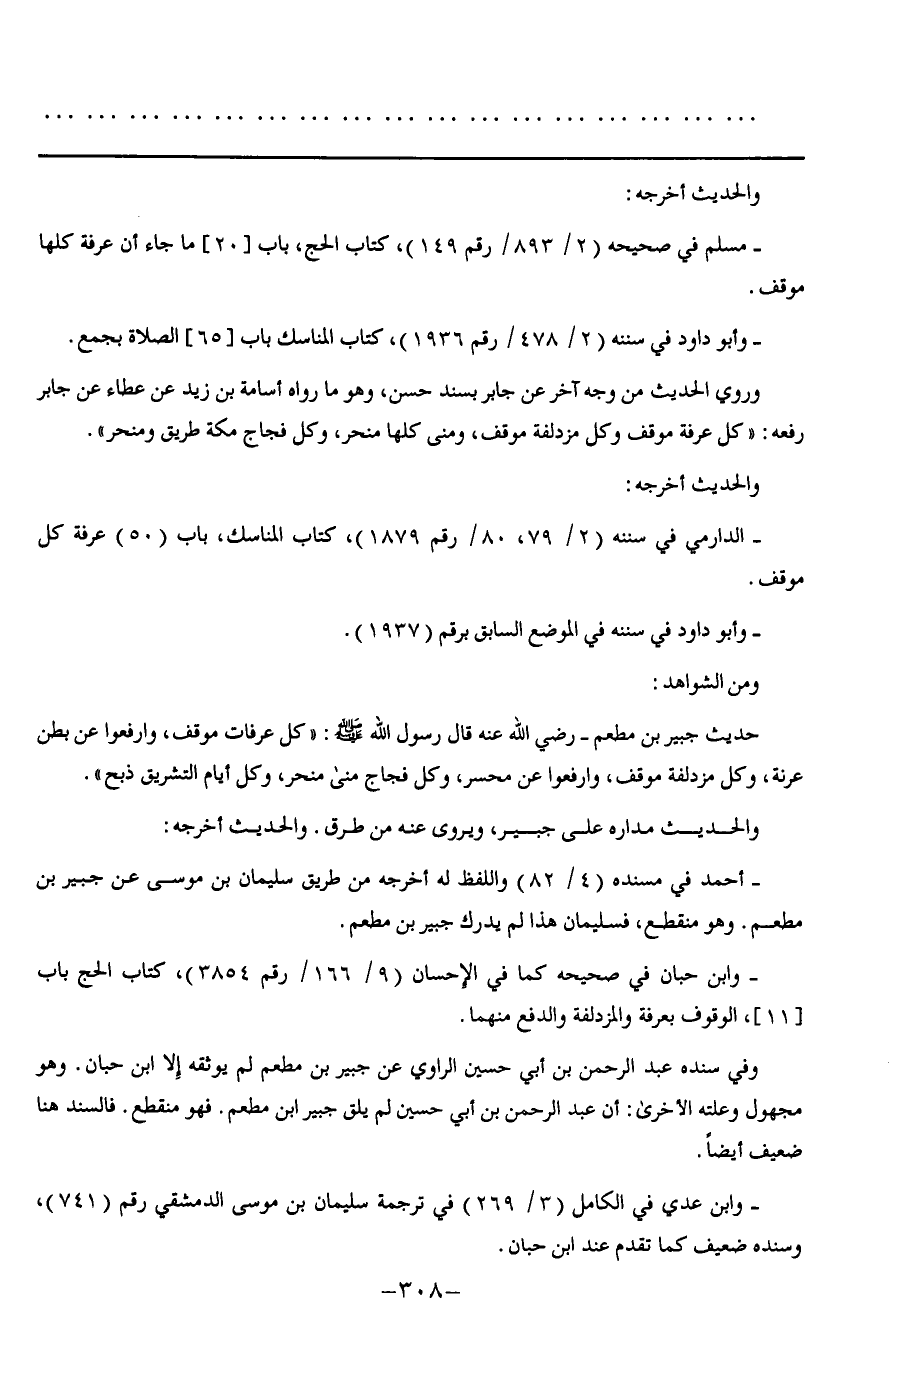 ... ... ... ... ... ... ... ... ... ... ... ... ... ... ... ... ...
والحديث أخرجه:
ـ مسلم في صحيحه (٢/ ٨٩٣/ رقم ١٤٩)، كتاب الحج، باب [٢٠] ما جاء أن عرفة كلها
موقف.
ـ وأبو داود في سننه (٢/ ٤٧٨/ رقم ١٩٣٦)، كتاب المناسك باب [٦٥] الصلاة بجمع.
وروي الحديث من وجه آخر عن جابر بسند حسن، وهو ما رواه أسامة بن زيد عن عطاء عن جابر
رفعه: «كل عرفة موقف وكل مزدلفة موقف، ومنى كلها منحر، وكل فجاج مكة طريق ومنحر».
والحديث أخرجه:
ـ الدارمي في سننه (٢/ ٧٩، ٨٠/ رقم ١٨٧٩)، كتاب المناسك، باب (٥٠) عرفة كل
موقف.
ـ وأبو داود في سننه في الموضع السابق برقم (١٩٣٧).
ومن الشواهد:
حديث جبير بن مطعم ـ رضي الله عنه قال رسول الله ﷺ: «كل عرفات موقف، وارفعوا عن بطن
عرنة، وكل مزدلفة موقف، وارفعوا عن محسر، وكل فجاج منىٰ منحر، وكل أيام التشريق ذبح».
والحديث مداره على جبير، ويروى عنه من طرق. والحديث أخرجه:
ـ أحمد في مسنده (٤/ ٨٢) واللفظ له أخرجه من طريق سليمان بن موسى عن جبير بن
مطعم. وهو منقطع، فسليمان هذا لم يدرك جبير بن مطعم.
ـ وابن حبان في صحيحه كما في الإحسان (٩/ ١٦٦/ رقم ٣٨٥٤)، كتاب الحج باب
[١١]، الوقوف بعرفة والمزدلفة والدفع منهما.
وفي سنده عبد الرحمن بن أبي حسين الراوي عن جبير بن مطعم لم يوثقه إلا ابن حبان. وهو
مجهول وعلته الأخرىٰ: أن عبد الرحمن بن أبي حسين لم يلق جبير ابن مطعم. فهو منقطع. فالسند هنا
ضعيف أيضاً.
ـ وابن عدي في الكامل (٣/ ٢٦٩) في ترجمة سليمان بن موسى الدمشقي رقم (٧٤١)،
وسنده ضعيف كما تقدم عند ابن حبان.
–٣٠٨–